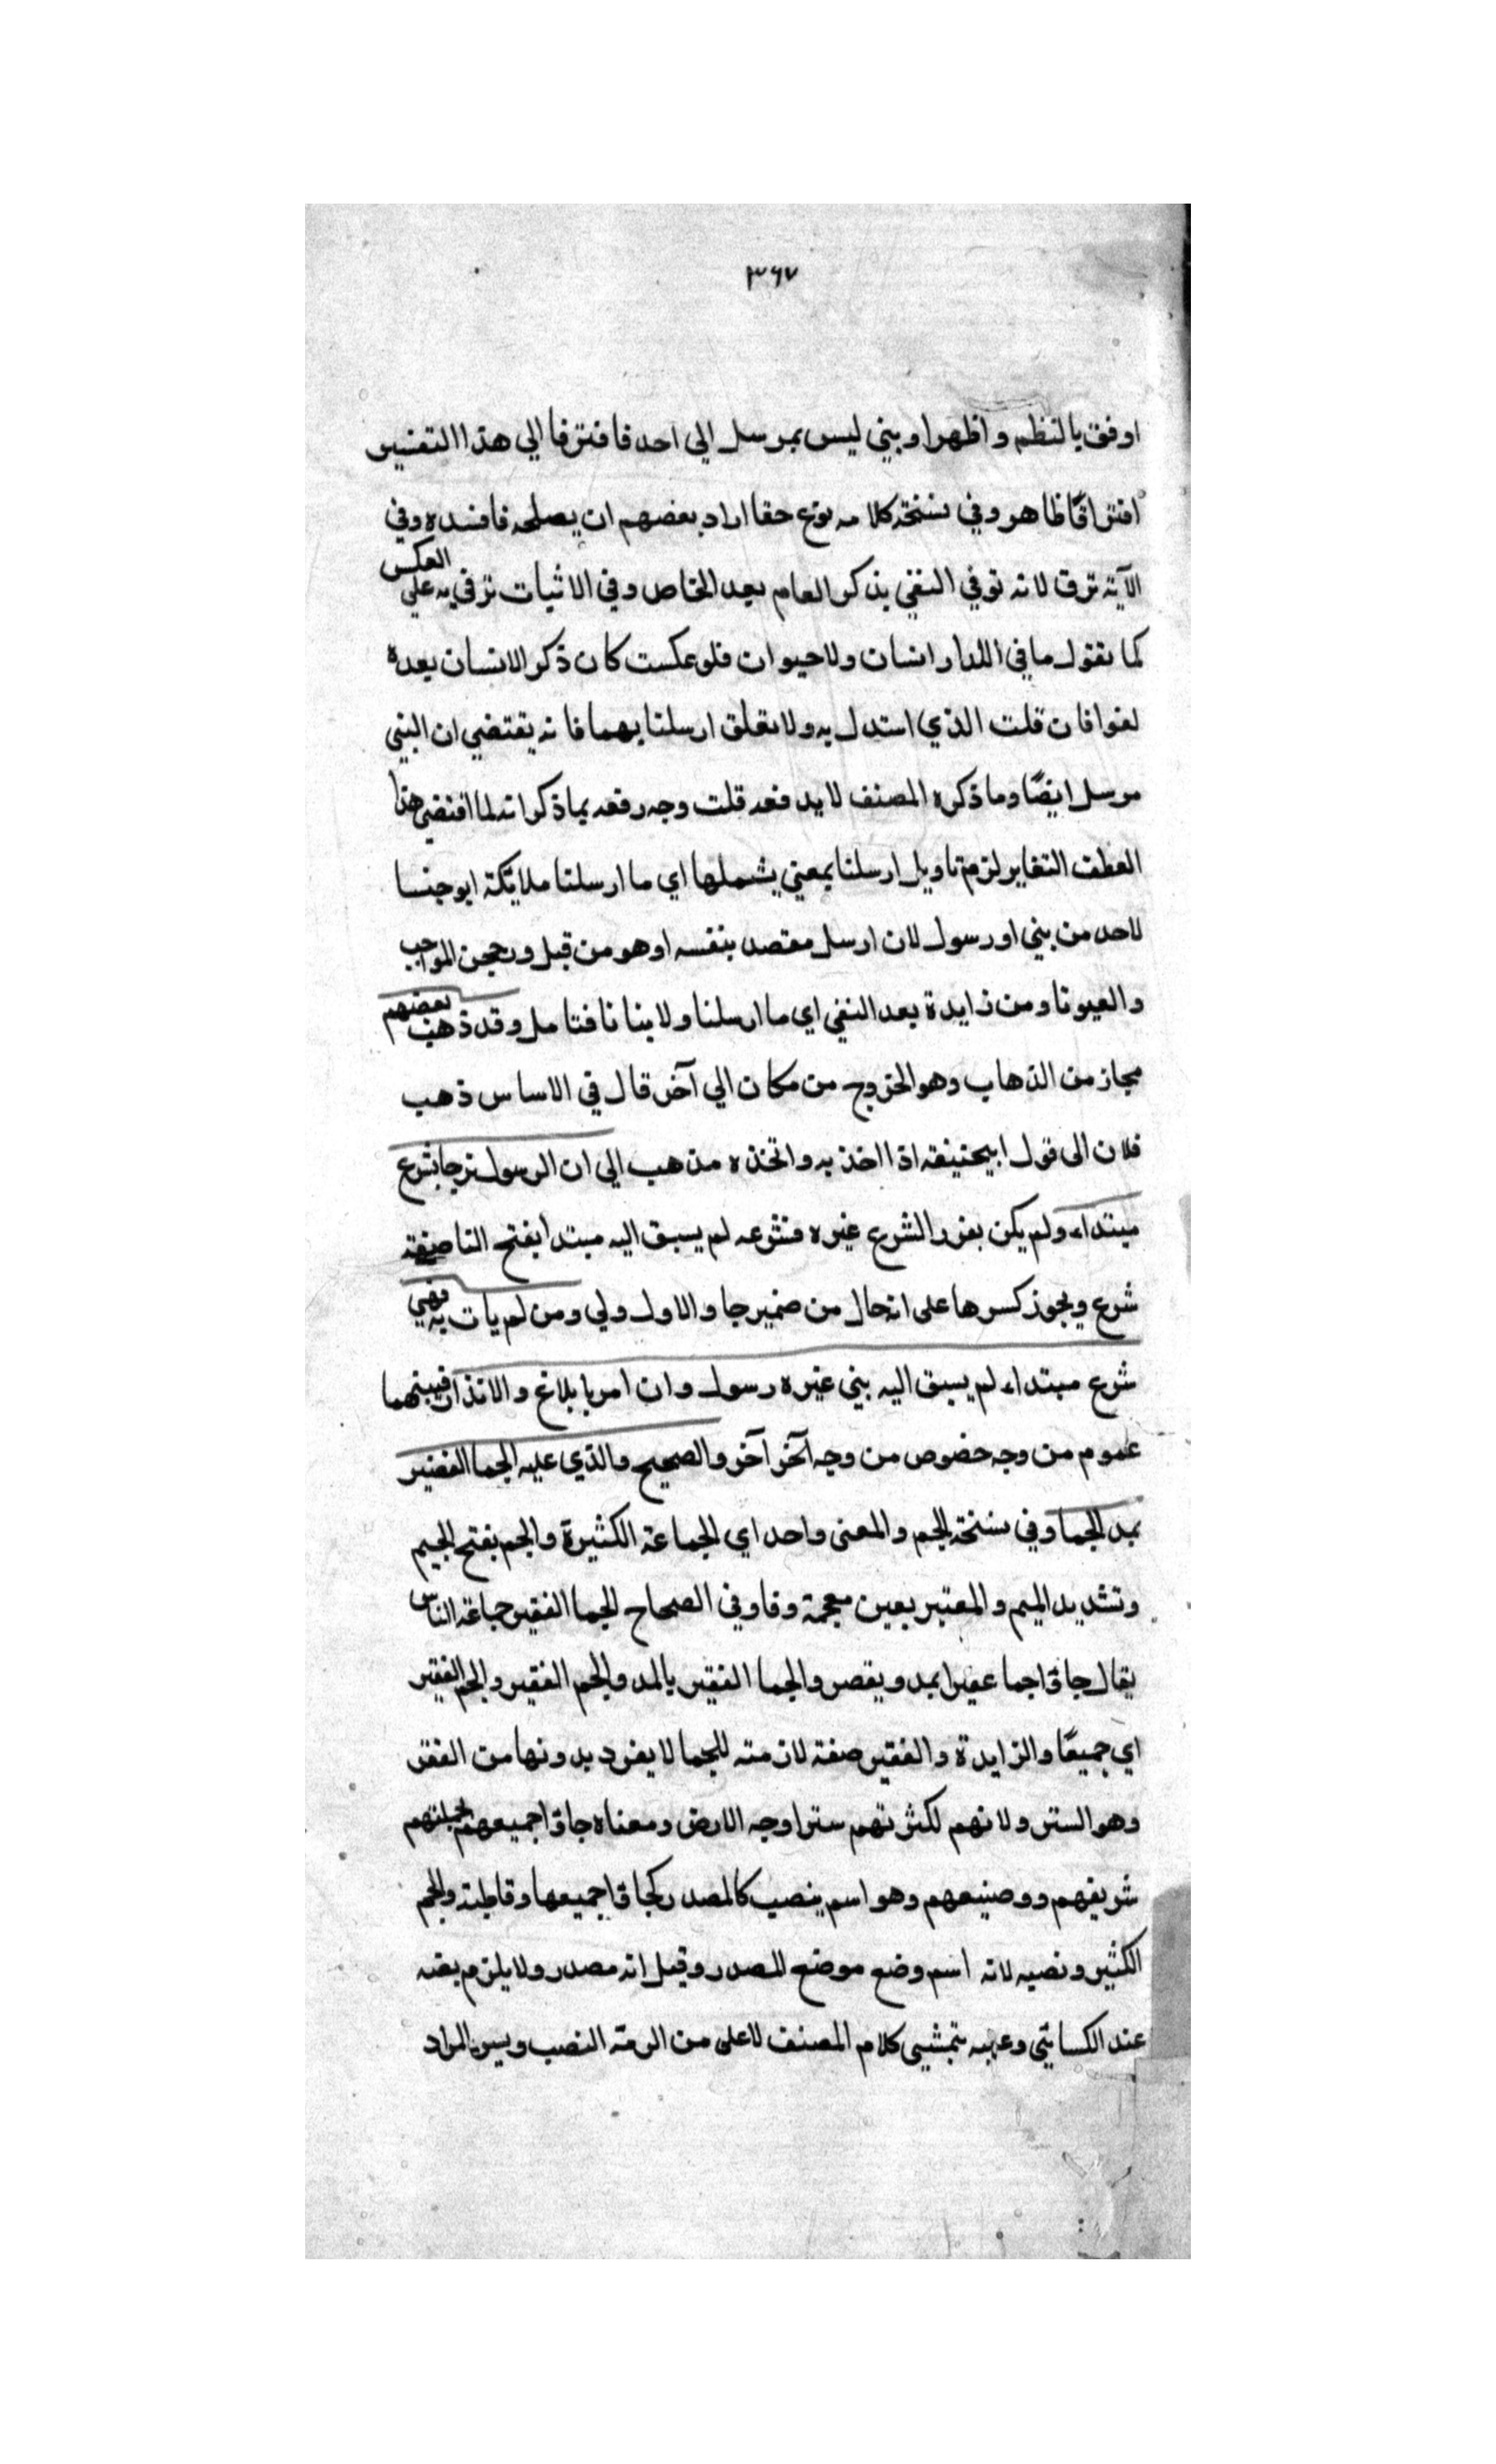 ٣٦٧
اوفق بالنظم واظهر او بني ليس بمرسل الي احد فافترقا الي هذا التفسير
افتراقًا ظاهر وفي نسخة كلامه نوع حقا اراد بعضهم ان يصلحه فافسده وفي
الآية ترق لانه نوفي النفي بذكر العام بعد الخاص وفي الاثبات ترقي به علي العكس
كما نقول ما في الدار انسان ولا حيوان فلو عكست كان ذكر الانسان بعده
لغوا فان قلت الذي استدل به ولا تعلق ارسلنا بهما فانه يقتضي ان النبي
مرسل ايضًا وما ذكره المصنف لا يدفعه قلت وجه رفعه بما ذكر انه لما اقتضي هذا
العطف التغاير لزم تاويل ارسلنا بمعني يشملها اي ما ارسلنا ملائكة ابو جنسا
لاحد من بني او رسول لان ارسل مقصد بنفسه او هو من قبل ورججن المواجب
والعيونا ومن زايدة بعد النفي اي ما ارسلنا ولا بنا نا فتامل وقد ذهب بعضهم
مجاز من الذهاب وهو الخروج من مكان الي آخر قال في الاساس ذهب
فلان الى قول ابيحنيفه اذا اخذ به واتخذه مذهب الي ان الرسول نرجا بشرع
مبتداء ولم يكن بعزر الشرع غيره فشرعه لم يسبق اليه مبتدا بفتح التا صفة
شرع ويجوز كسرها على انه حال من ضمير جا والاول ولي ومن لم يات به فهي
شرع مبتداء لم يسبق اليه بني غيره رسول وان امر بابلاغ والانذار فبينهما
عموم من وجه خصوص من وجه آخر آخر والصحيح والذي عليه الجما الغفير
بمد الجما وفي نسخة الجم والمعنى واحد اي الجماعة الكثيرة والجم بفتح الجيم
وتشديد الميم والمعتبر بعين معجمة وفا وفي الصحاح الجما الفقير جماعة الناس
يقال جاؤا جما عفيرا بمد ويقصر والجما الفقير بالمد والجم الفقير والجم الفقير
اي جميعًا والزايدة والفقير صفة لازمته للجما لا يفرد بدونها من الغفر
وهو الستر ولانهم لكثرتهم ستروا وجه الارض ومعناه جاؤا جميعهم بجملتهم
شريفهم ووضيعهم وهو اسم ينصب كالمصدر كجاؤا جميعها وقاطبة والجم
الكثير ونصبه لانه اسم وضع موضع المصدر وقيل انه مصدر ولا يلزم بضه
عند الكسائي وعليه يتمشي كلام المصنف لا على من الرمة النصب وسي المراد